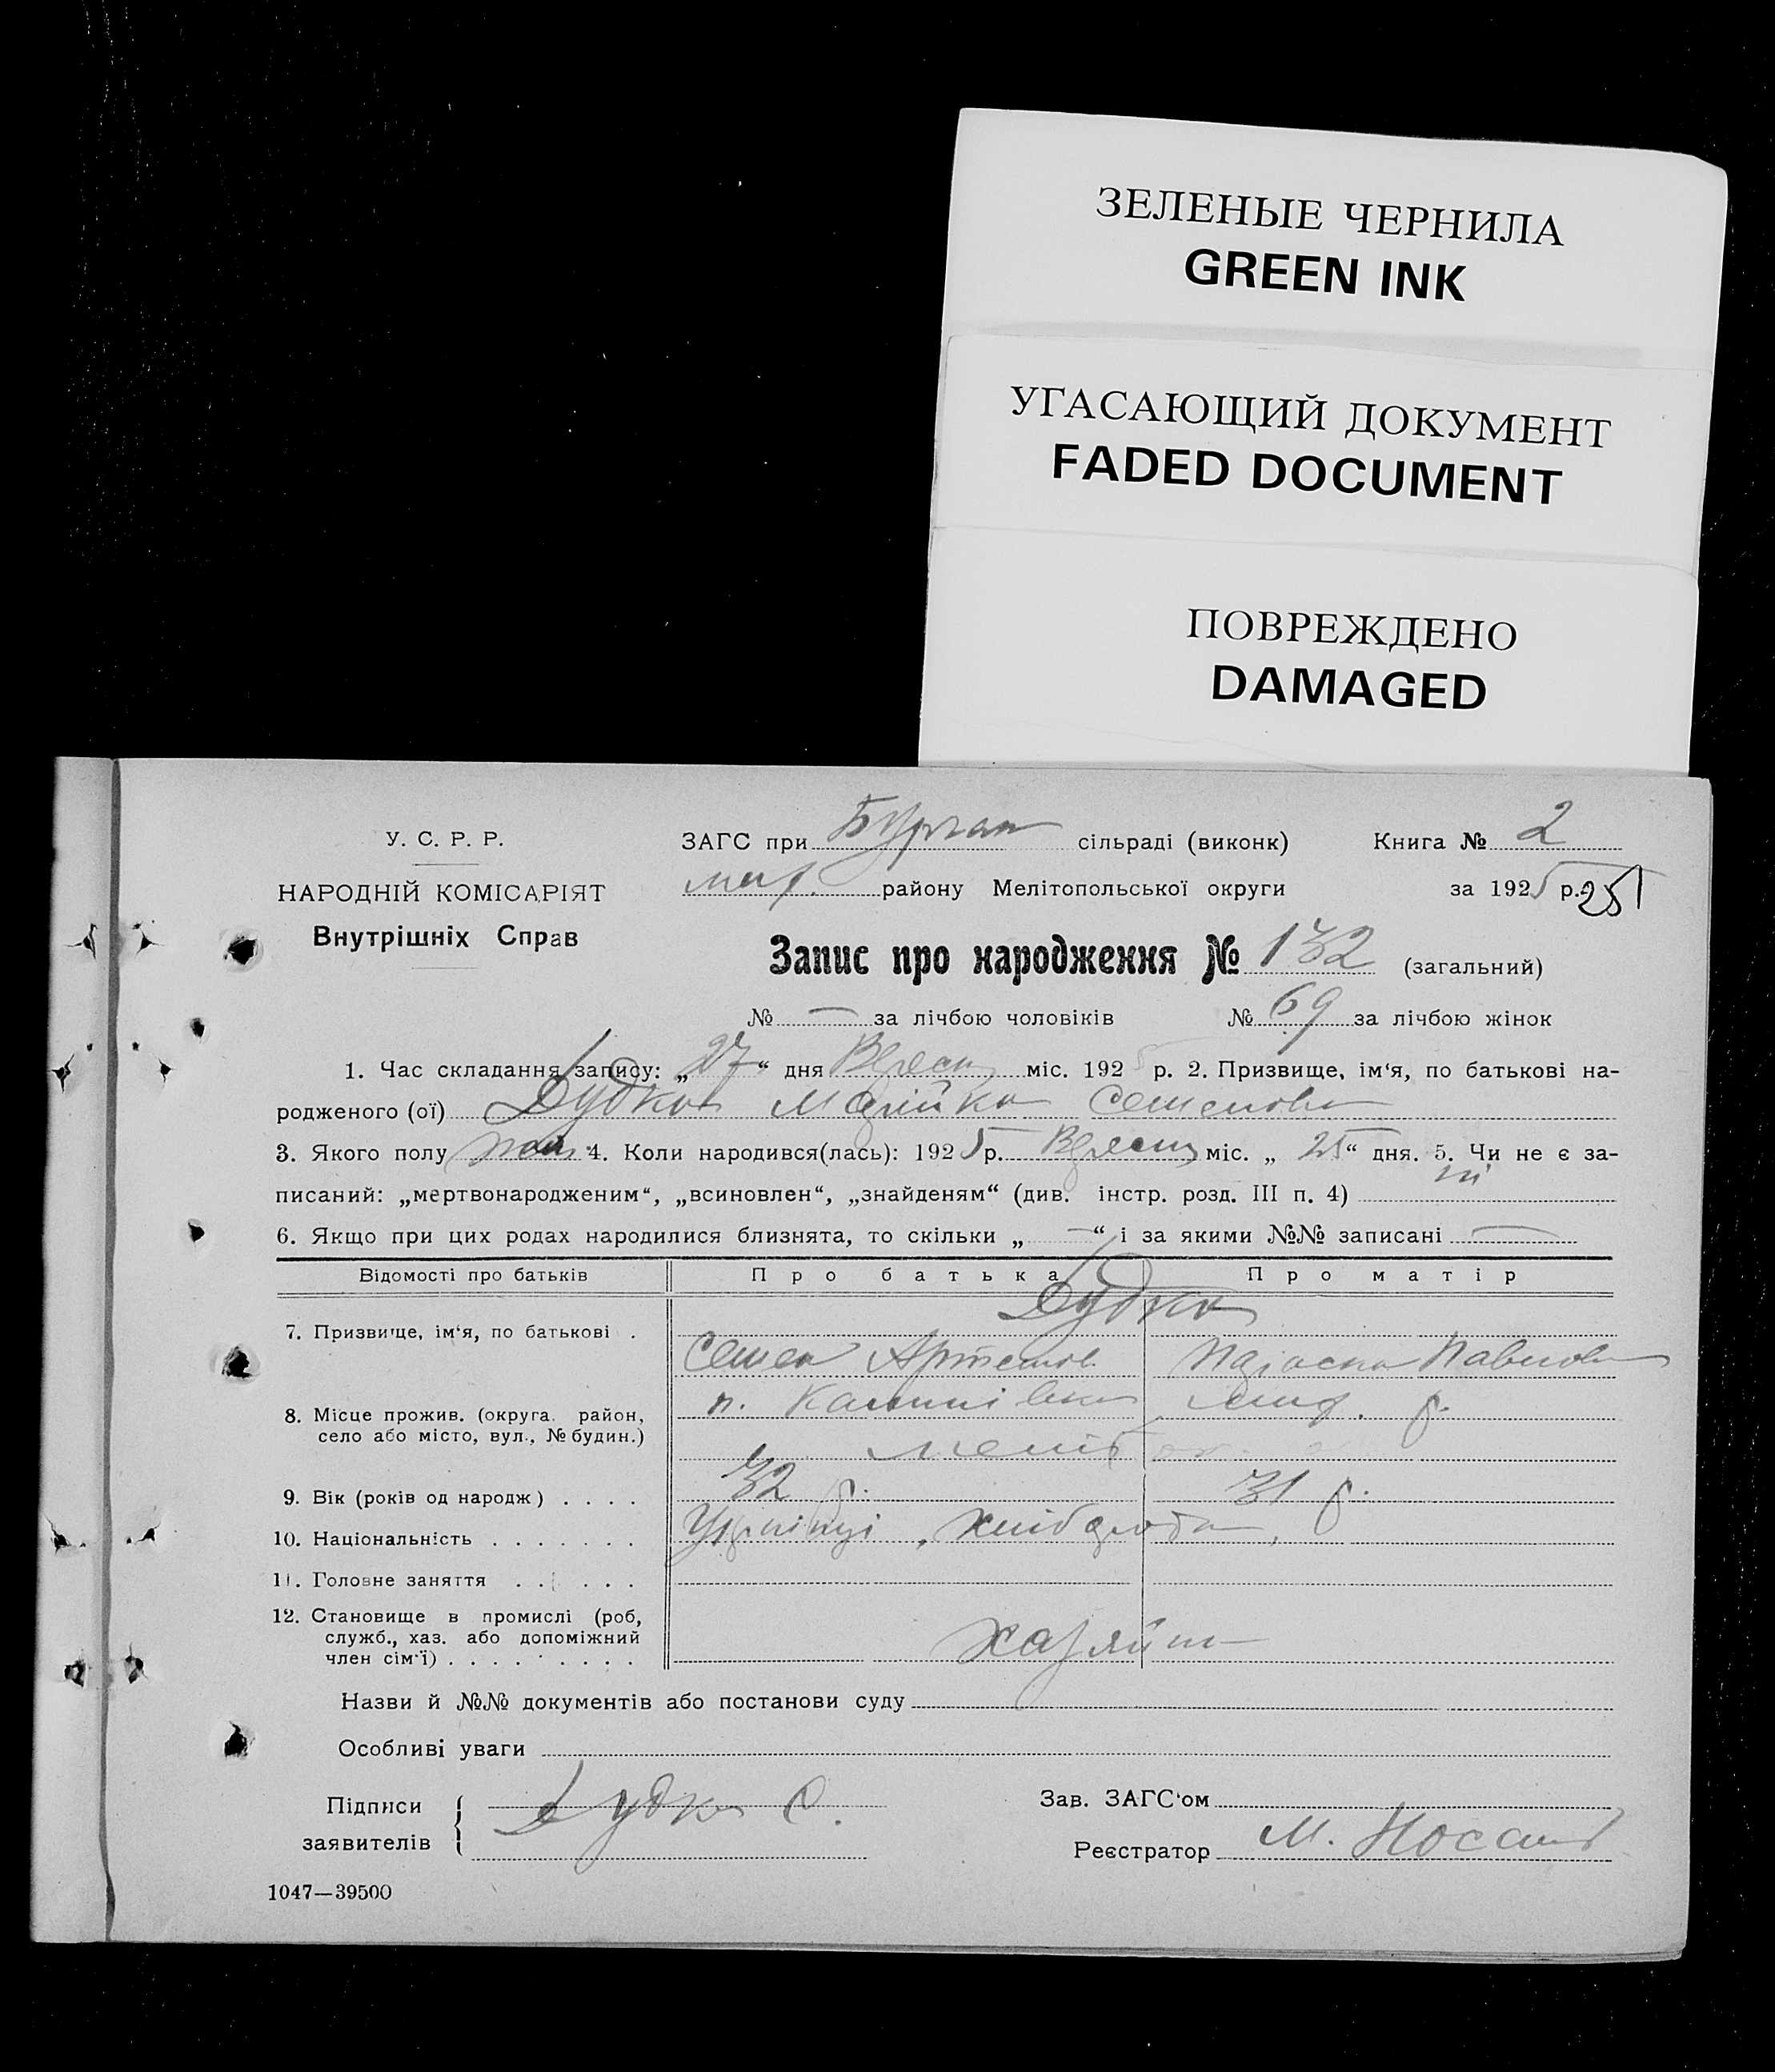 ЗЕЛЕНЫЕ ЧЕРНИЛА
GREEN INK
УГАСАЮЩИЙ ДОКУМЕНТ
FADED DOCUMENT
ПОВРЕЖДЕНО
DAMAGED
У. С. Р. Р.
НАРОДНІЙ КОМІСАРІЯТ
Внутрішніх Справ
ЗАГС при сільраді (виконк) Книга № 2
району Мелітопольської округи за 1925 р. 251
Запис про народження № 132 (загальний)
№ — за лічбою чоловіків № 69 за лічбою жінок
1. Час складання запису: „27“ дня Вересн міс. 1925 р. 2. Призвище, ім‘я, по батькові на-
родженого (ої) Дудко Марійка Семеновна
3. Якого полу жен 4. Коли народився(лась): 1925 р. Вересн міс. „25“ дня. 5. Чи не є за-
писаний: „мертвонародженим“, „всиновлен“, „знайденям“ (див. інстр. розд. III п. 4) ні
6. Якщо при цих родах народилися близнята, то скільки „—“ і за якими №№ записані —
Відомості про батьків Про батька Про матір
7. Призвище, ім‘я, по батькові . Дудко
Семен Артемов. Параска Павлов
8. Місце прожив. (округа, район,
село або місто, вул., № будин.)
п. Калинівка р.
9. Вік (років од народж) . . . . 32 р. 31 р.
10. Національність . . . . . . . Українці, хлібороби,
11. Головне заняття . . . . . .
12. Становище в промислі (роб,
служб., хаз. або допоміжний
член сім‘ї) . . . . . . . . . Хазяїн
Назви й №№ документів або постанови суду
Особливі уваги
Підписи
заявителів
Дудко С.
Зав. ЗАГС‘ом
Реєстратор М.
1047—39500